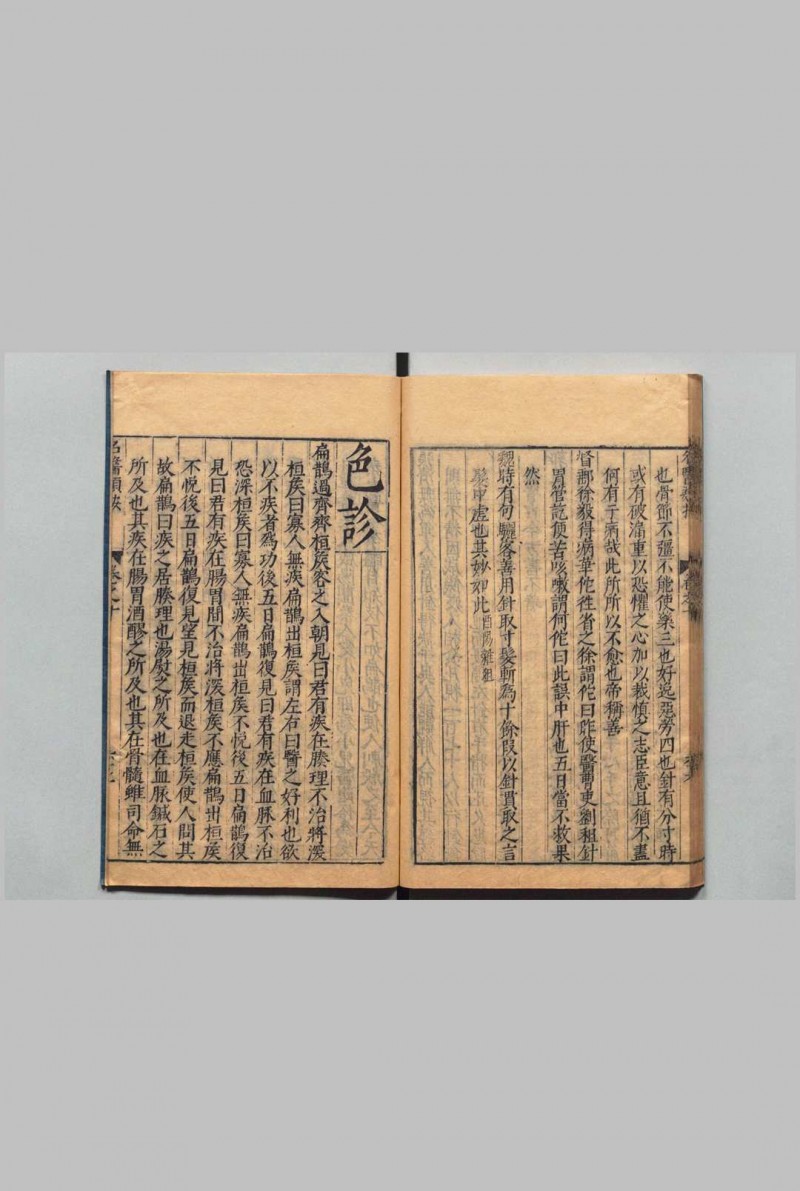 也骨節不彊不能使藥三也好逸惡勞四也針有分寸時
或有破漏重以恐懼之心加以裁慎之志臣意且猶不盡
何有于病哉此所所以不愈也帝稱善
督郡徐毅得病華佗徃省之徐謂佗曰昨使醫曹吏劉租針
胃管訖便苦咳嗽謂何佗曰此誤中肝也五日當不救果
然
魏時有句驪客善用針取寸髮斬為十餘叚以針貫取之言
髮中虛也其妙如此酉陽雜俎
色診
扁鵲過齊齊桓矦客之入朝見曰君有疾在腠理不治將深
桓矦曰寡人無疾扁鵲出桓矦謂左右曰醫之好利也欲
以不疾者爲功後五日扁鵲復見曰君有疾在血脉不治
恐深桓矦曰寡人無疾扁鵲出桓矦不悅後五日扁鵲復
見曰君有疾在腸胃間不治將深桓矦不應扁鵲出桓矦
不悅後五日扁鵲復見望見桓矦而退走桓矦使人問其
故扁鵲曰疾之居腠理也湯熨之所及也在血脉鍼石之
所及也其疾在腸胃酒醪之所及也其在骨髓雖司命無
名醫類案 卷之十